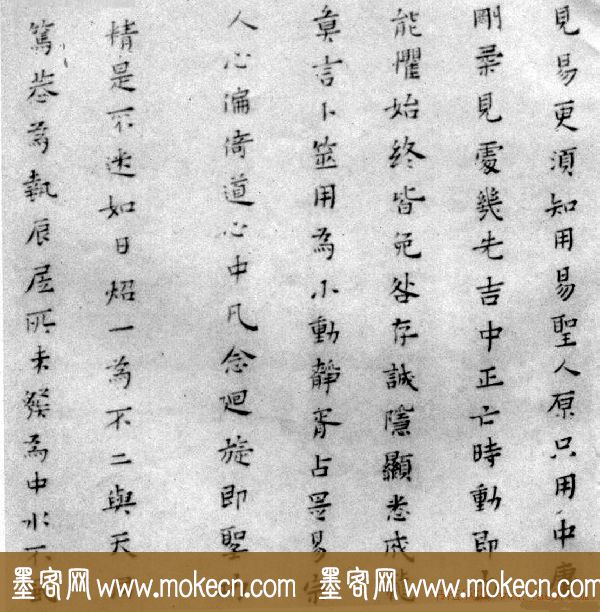 見易更須知用易聖人原只用中庸
剛柔見處幾先吉中正亡時動即
能懼始終皆免咎存誠隱顯悉成龍
莫言卜筮用為小動靜胥占是易宗
人心偏倚道心中凡念迴旋即聖
精是不迷如日炤一為不二與天
篤恭為執辰居所未發為中水不
墨客网 www.mokecn.com 墨客网 www.mokecn.com